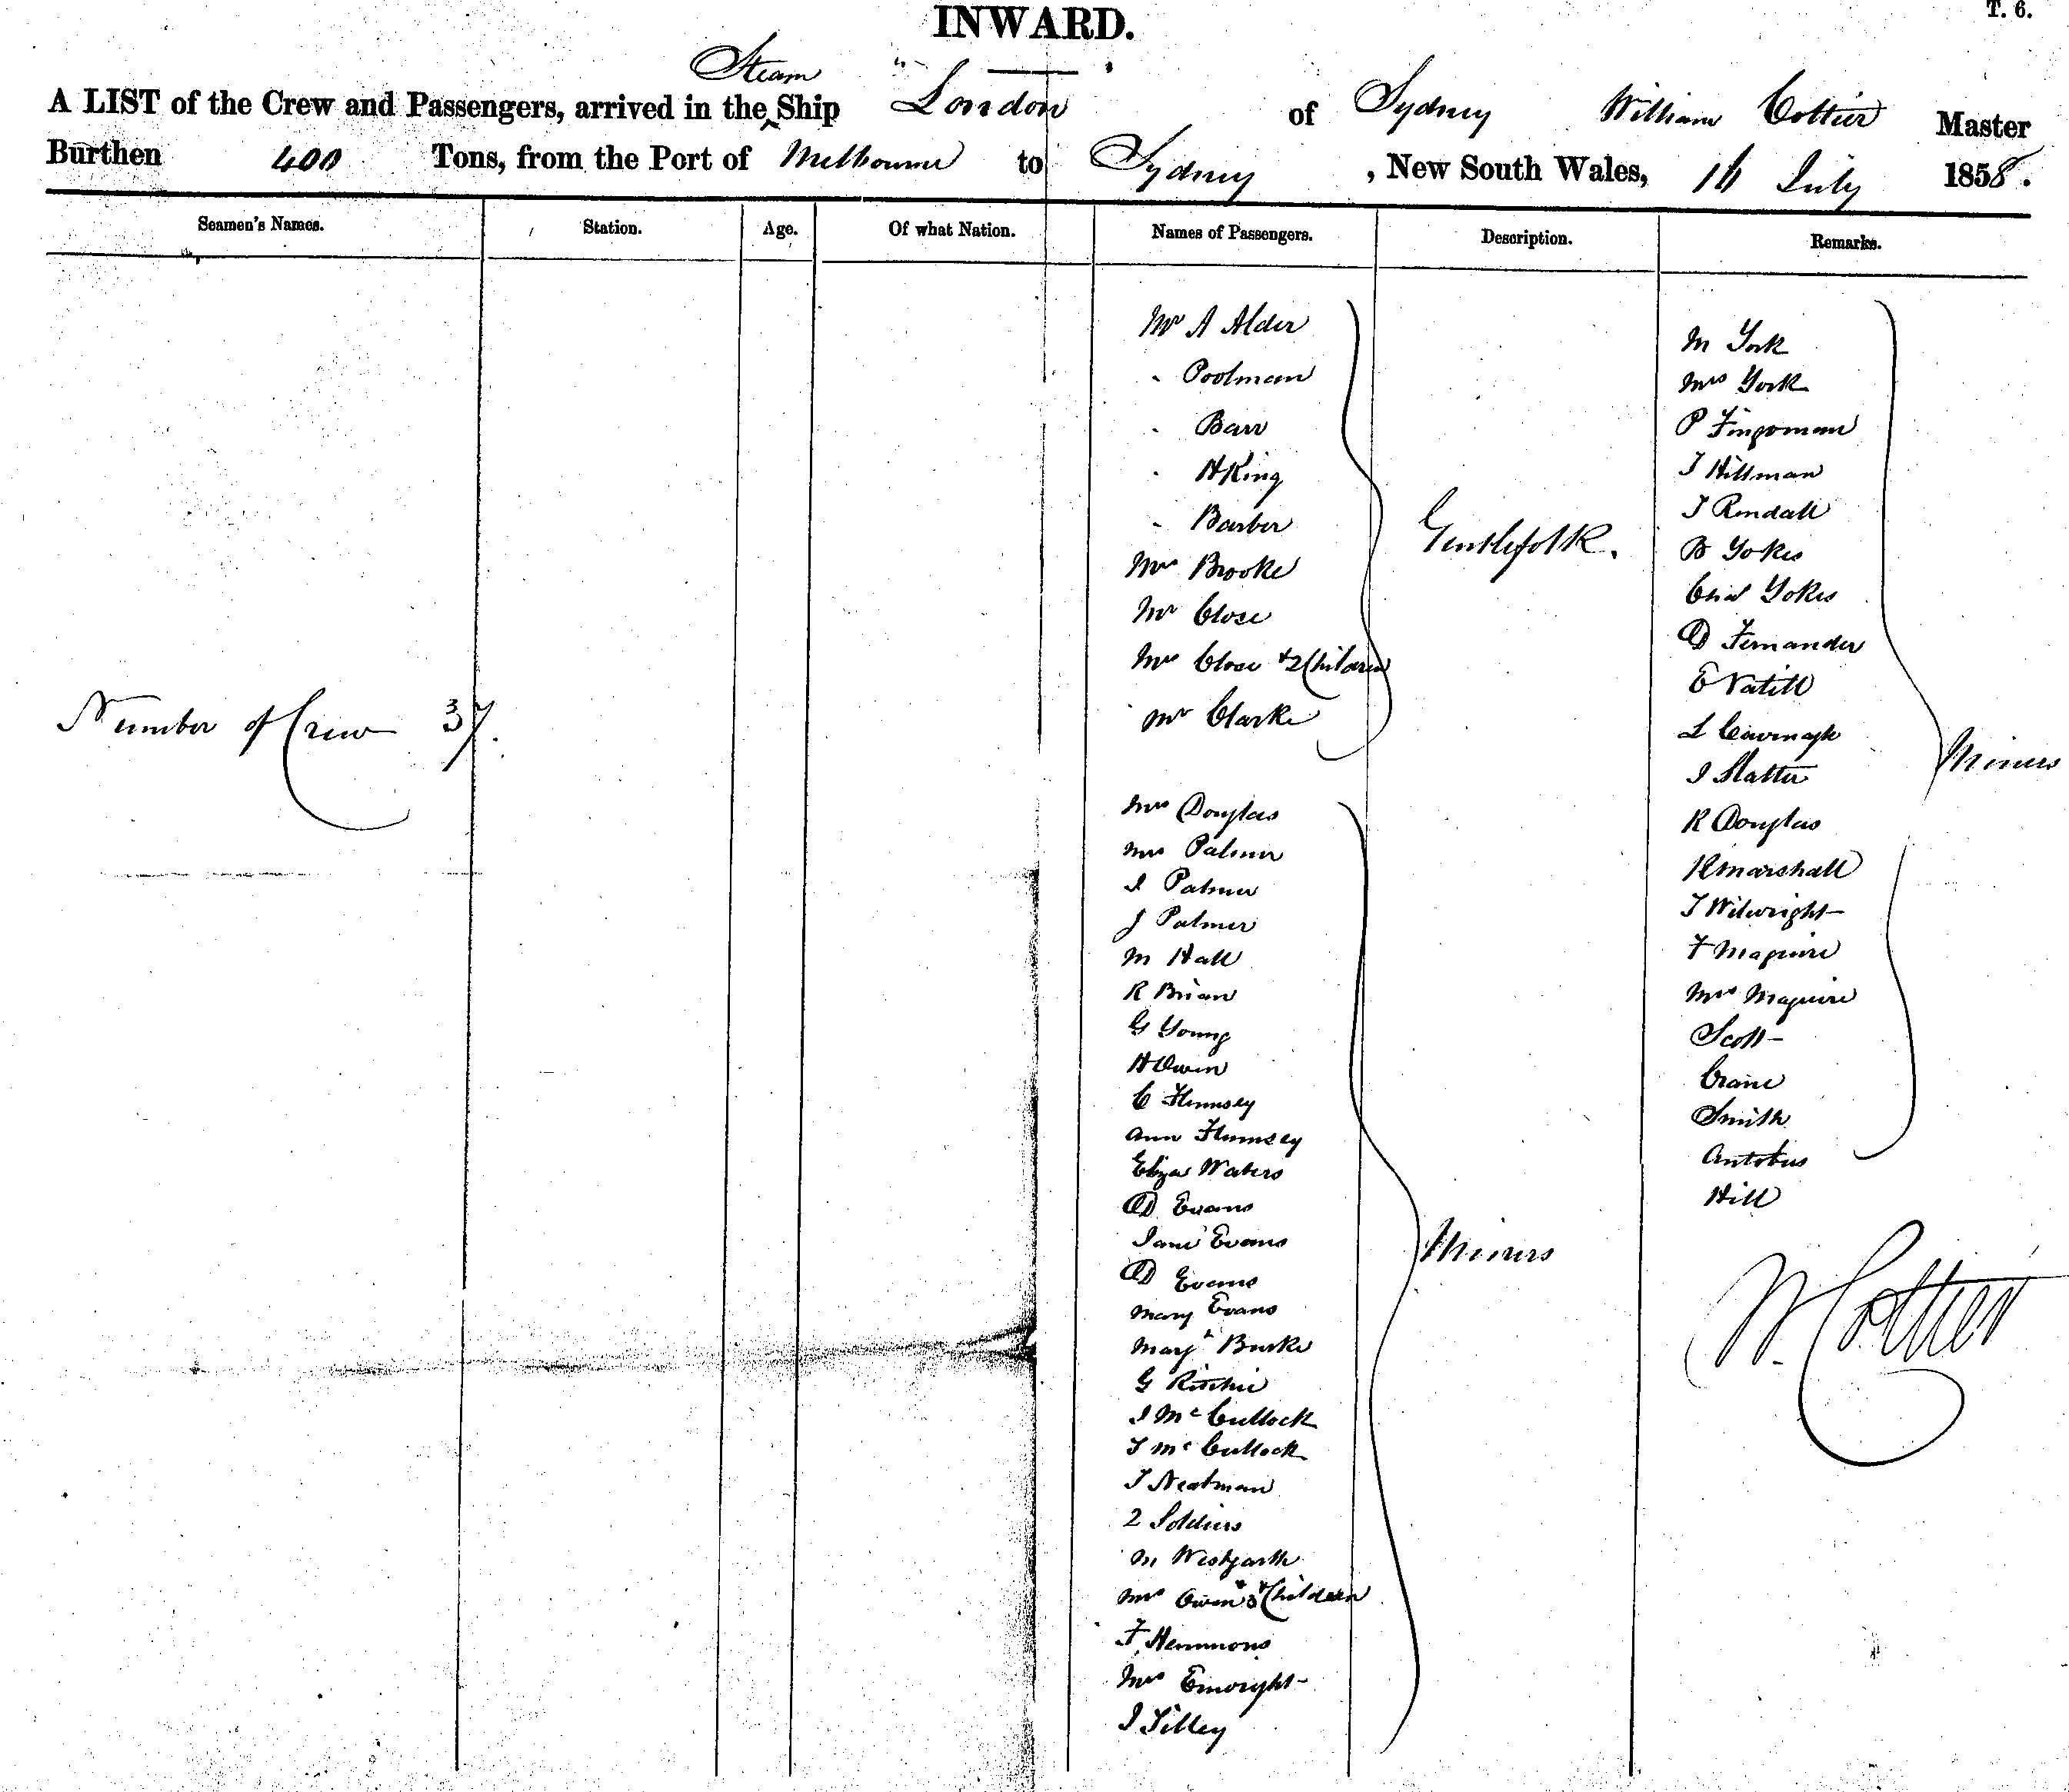 T. 6.
INWARD.
A LIST of the Crew and Passengers, arrived in the Steam Ship London of Sydney William Cottier Master
Burthen 400 Tons, from the Port of Melbourne to Sydney, New South Wales, 16 July 1858.
Seamen's Names. Station. Age. Of what Nation. Names of Passengers. Description. Remarks.
Number of Crew 37.
Mr A Alder
" Poolman
" Barr
" H King
" Barber
Mrs Brooke
Mr Close
Mrs Close & 2 Children
Mr Clarke
Gentlefolk.
Mrs Douglas
Mrs Palmer
I Palmer
J Palmer
M Hall
R Brian
G Young
H Owen
C Flumsey
Ann Flumsey
Eliza Waters
D Evans
Jane Evans
D Evans
Mary Evans
Mary Burke
G Ritchie
I McCullock
T McCullock
T Neatman
2 Soldiers
M Westgarth
Mrs Owen & 3 Children
F Hemmons
Mrs Enwright
I Tilley
Miners
M York
Mrs York
P
T Hillman
T Rendall
B Yokes
Chas Yokes
D Fernander
E
L Cavenagh
I Slatter
R Douglas
R Marshall
T Wilwright
F Maguire
Mrs Maguire
Scott
Crane
Smith
Antobus
Hill
Miners
W. Cottier